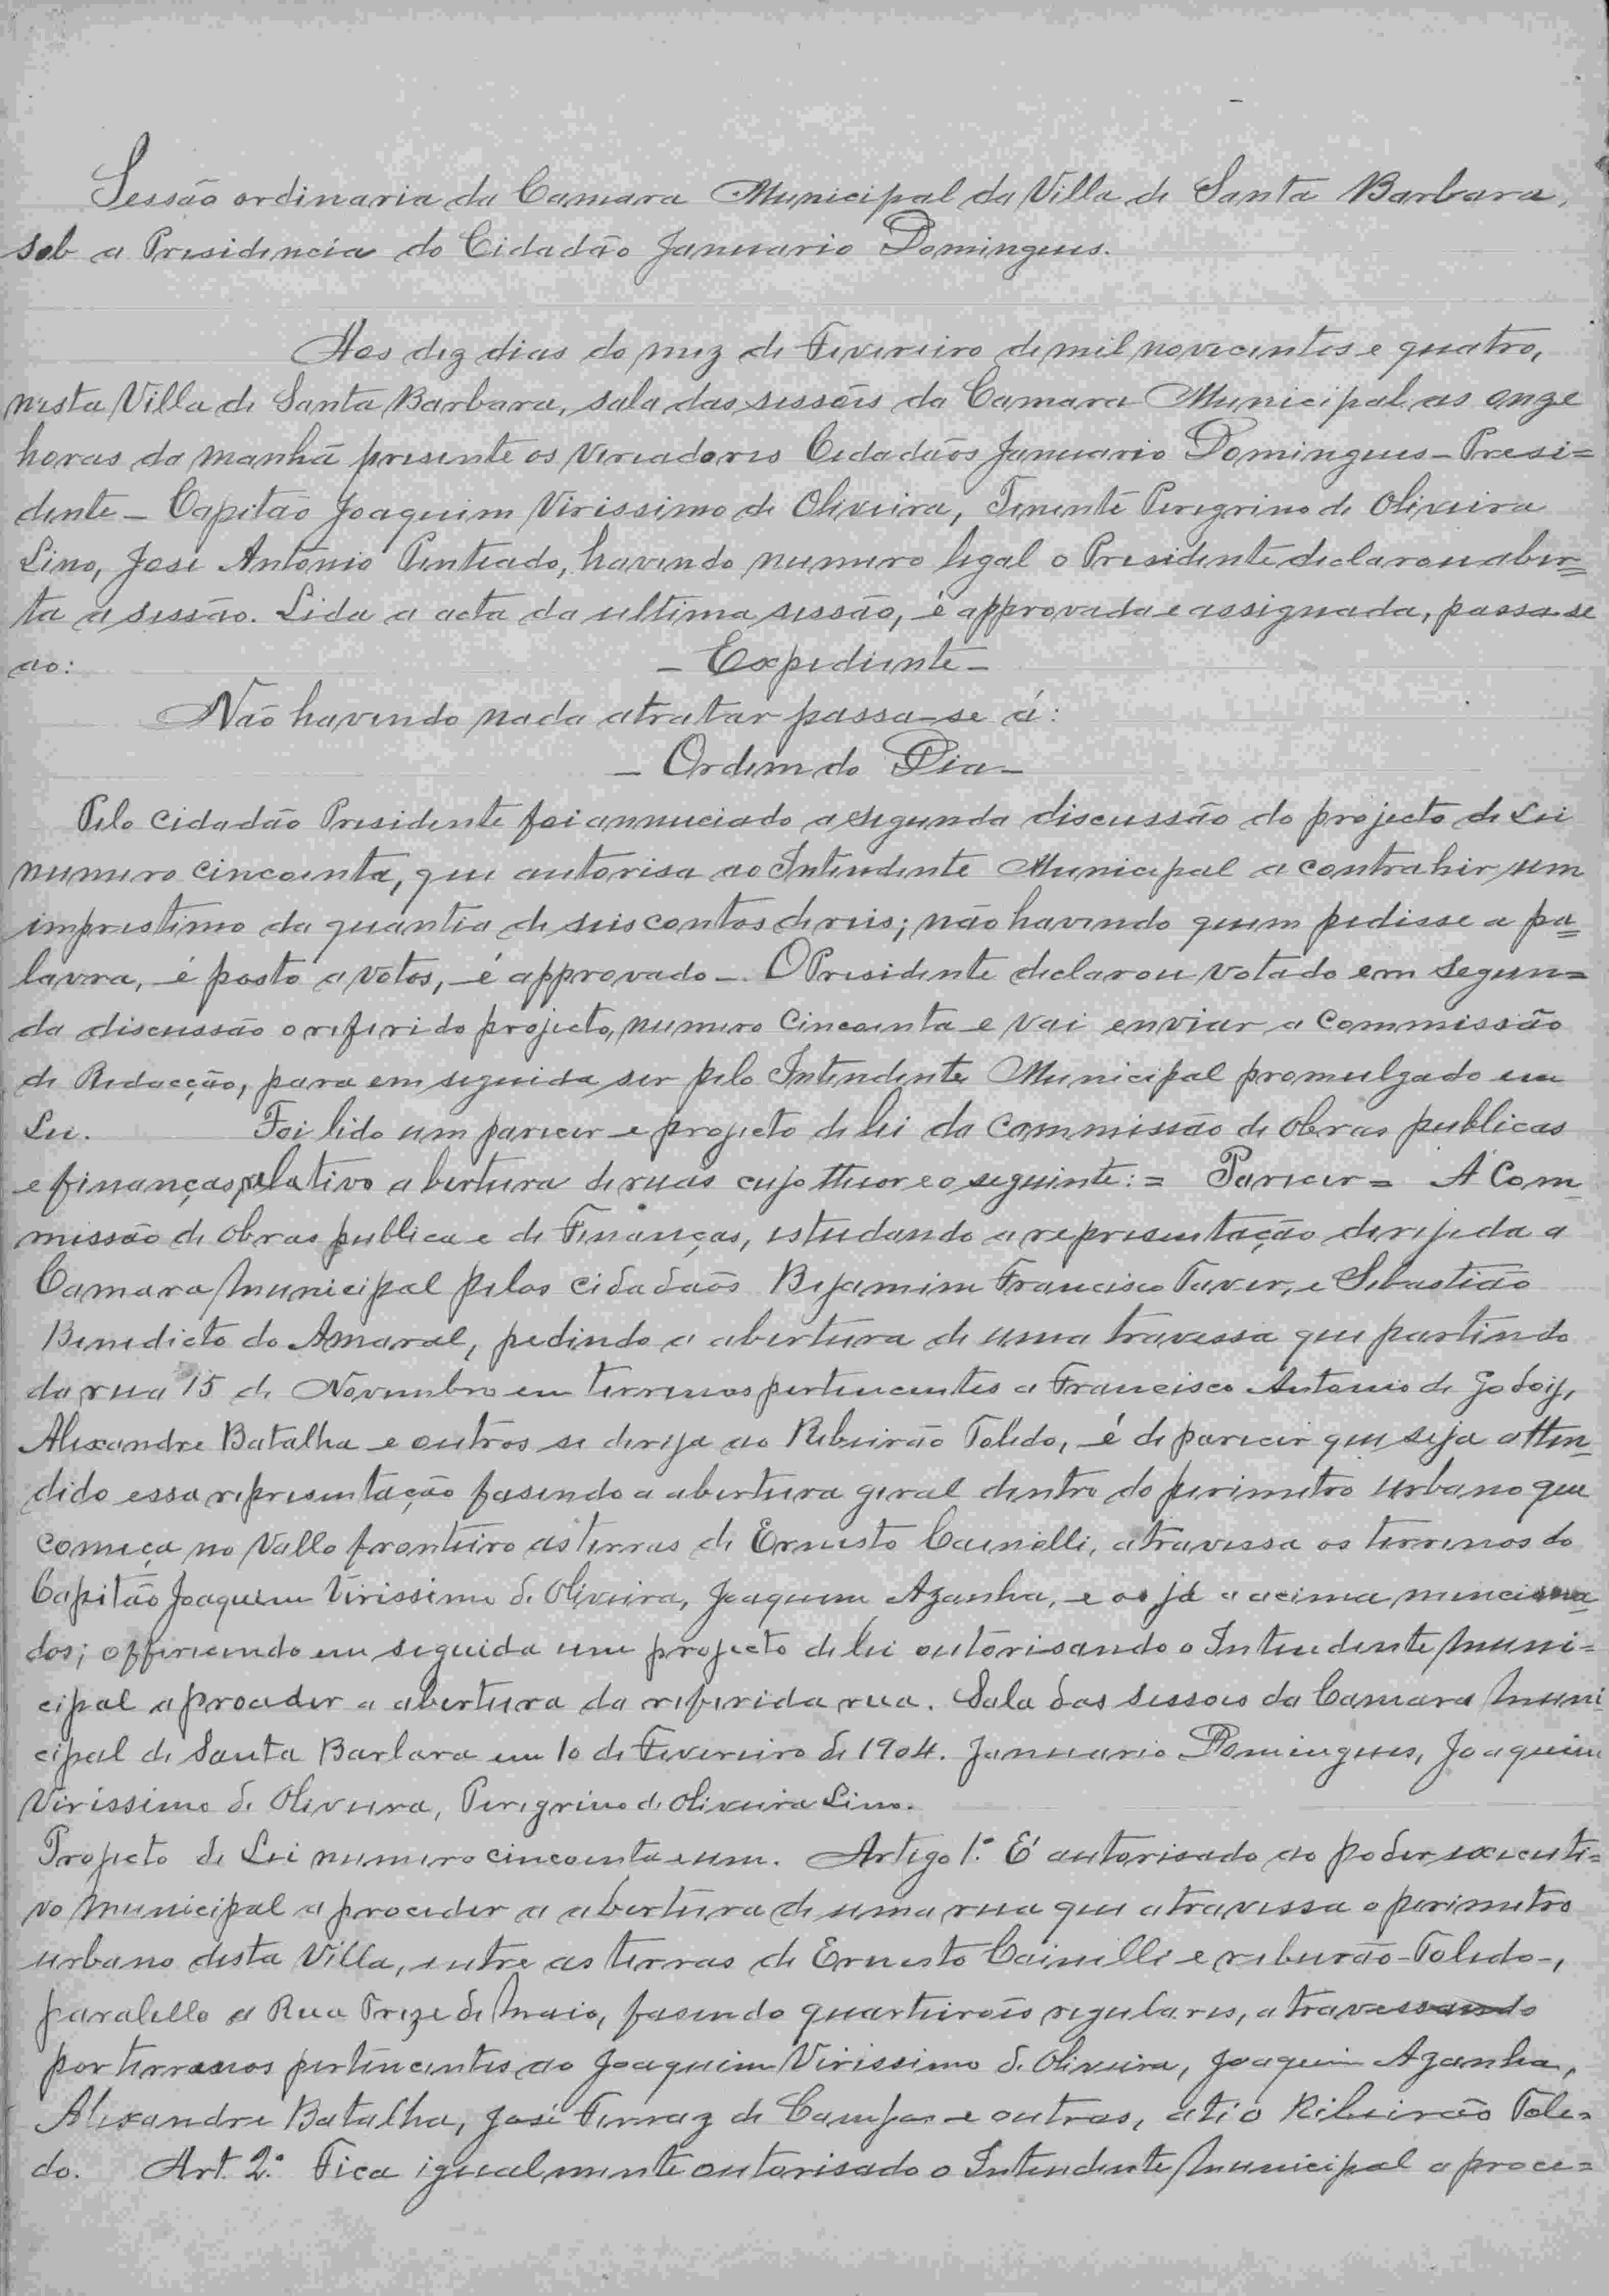 Sessão ordinaria da Camara Municipal da Villa de Santa Barbara,
sob a Presidencia do Cidadão Januario Domingues.
Aos dez dias do mez de Fevereiro de mil novecentos e quatro,
nesta Villa de Santa Barbara, sala das sessões da Camara Municipal as onze
horas da manhã presente os Vereadores Cidadãos Januario Domingues - Presi=
dente - Capitão Joaquim Verissimo de Oliveira, Tenente Peregrino de Oliveira
Lino, José Antonio Penteado, havendo numero legal o Presidente declarou aber=
ta a sessão. Lida a acta da ultima sessão, é approvada e assignada, passa-se
ao: - Expediente -
Não havendo nada a tratar passa-se á:
- Ordem do Dia -
Pelo Cidadão Presidente foi annuciado a segunda discussão do projecto de Lei
numero cincoenta, que autorisa ao Intendente Municipal a contrahir um
imprestimo da quantia de seis contos de reis; não havendo quem pedisse a pa=
lavra, é posto a votos, é approvado - O Presidente declarou votado em segun=
da discussão o referido projecto, numero Cincoenta e vai enviar a Commissão
de Redacção, para em seguida ser pelo Intendente Municipal promulgado em
Lei. Foi lido um parecer e projecto de lei da Commissão de Obras publicas
e finanças relativo abertura de ruas cujo theor e o seguinte: = Parecer = A Com
missão de Obras publica e de Finanças, estudando a representação derijeda a
Camara Municipal pelos Cidadãos Bejamim Francisco Taver, e Sebastião
Benedicto do Amaral, pedindo a abertura de uma travessa que partindo
da rua 15 de Novembro em terrenos pertencentes a Francisco Antonio de Godoy,
Alexandre Batalha e outros se derija ao Ribeirão Toledo, é de parecer que seja atten_
dido essa representação fasendo a abertura geral dentro do perimetro urbano que
começa no Vallo fronteiro as terras de Ernesto Cainelli, atravessa os terrenos do
Capitão Joaquim Verissimo de Oliveira, Joaquim Azanha, e os já a acima menciona_
dos; offerecendo em seguida um projecto de lei autorisando o Intendente Muni=
cipal a proceder a abertura da referida rua. Sala das sessoes da Camara Muni
cipal de Santa Barbara em 10 de Fevereiro de 1904. Januario Domingues, Joaquim
Verissimo de Oliveira, Peregrino de Oliveira Lino.
Projecto de Lei numero cincoenta e um. Artigo 1.º É autorisado ao poder executi=
vo Municipal a proceder a abertura de uma rua que atravessa o perimetro
urbano desta Villa, entre as terras de Ernesto Cainelli e reberão - Toledo -,
paralello a Rua Treze de Maio, fasendo quarteirões regulares, atravessando
por terrenos pertencentes ao Joaquim Verissimo de Oliveira, Joaquim Azanha,
Alexandre Batalha, José Ferraz de Campos e outros, até o Ribeirão Tole=
do. Art. 2.º Fica igualmente autorisado o Intendente Municipal a proce=